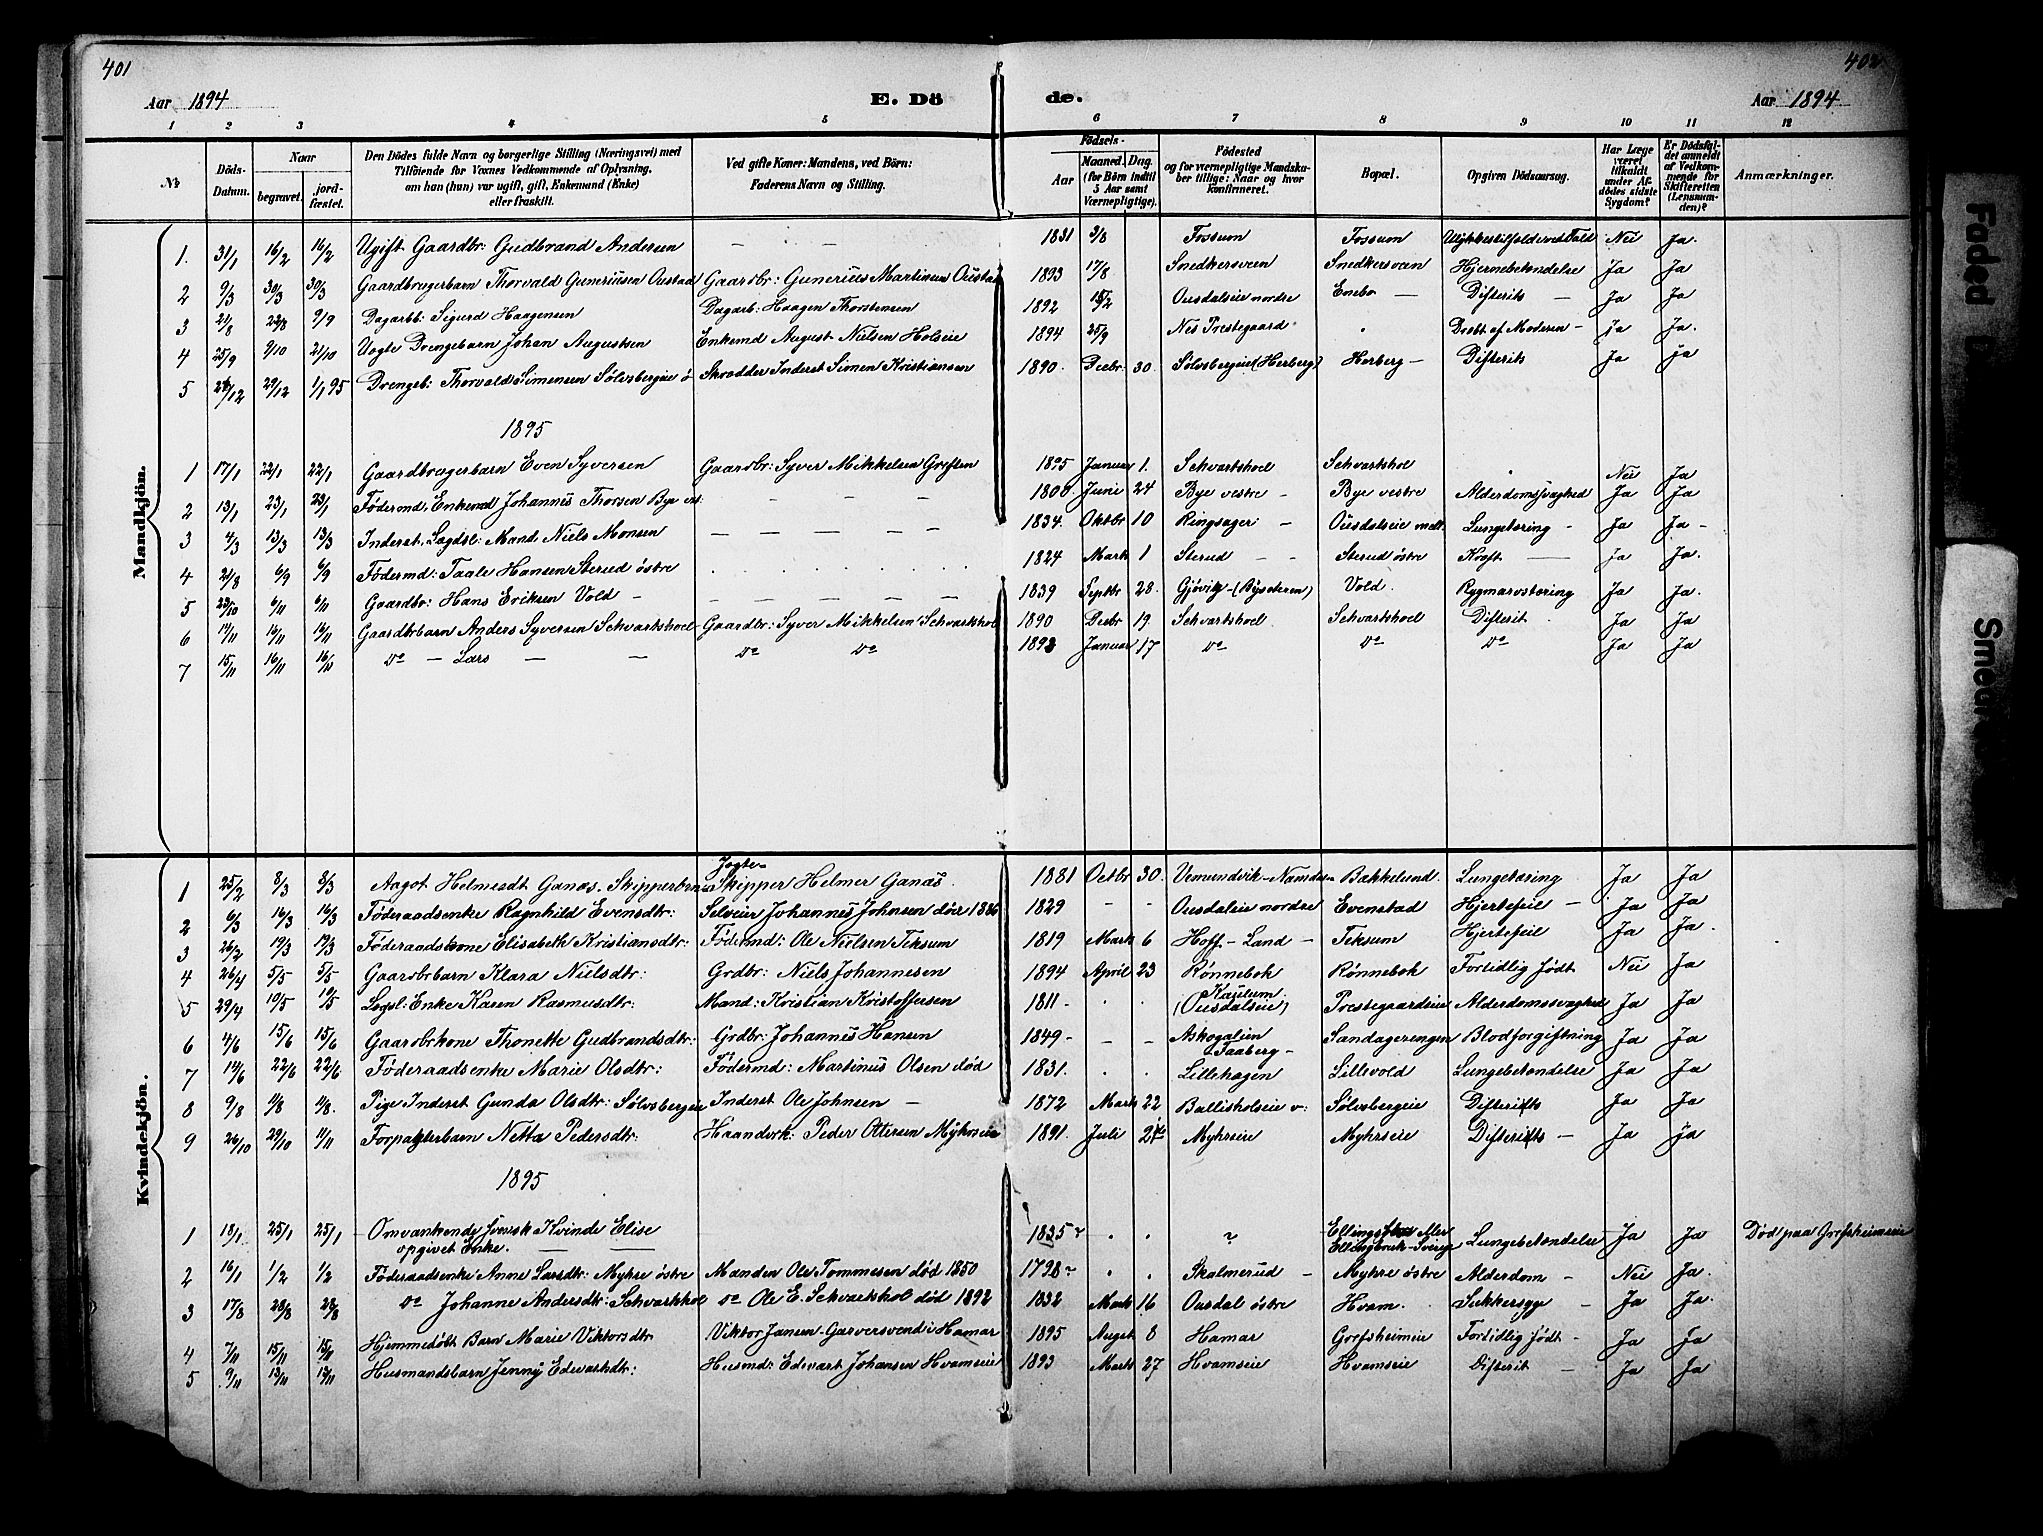 401
402
Aar 1894
E. Dö
de.
Aar 1894
1 2 3 4 5 6 7 8 9 10 11 12
No
Döds-Datum.
Naar
begravet.
jord-fæstet.
Den Dödes fulde Navn og borgerlige Stilling (Næringsvei) med Tilföiende for Voxnes Vedkommende af Oplysning, om han (hun) var ugift, gift, Enkemand (Enke) eller fraskilt.
Ved gifte Koner: Mandens, ved Börn: Faderens Navn og Stilling.
Födsels-
Aar
Maaned. Dag. (for Börn indtil 5 Aar samt Værnepligtige).
Födested og for værnepligtige Mandskaber tillige: Naar og hvor konfirmeret.
Bopæl.
Opgiven Dödsaarsag.
Har Læge været tilkaldt under Afdödes sidste Sygdom?
Er Dödsfaldet anmeldt af Vedkommende for Skifteretten (Lensmanden)?
Anmærkninger.
Mandkjön.
1. 31/1 16/2 16/2 Ugift Gaardbr: Gudbrand Andersen — — — 1831 2/8 Fossum Fossum Ulykkestilfælde ved Fald Nei Ja.
2 9/3 30/3 30/3 Gaardbrugerbarn Thorvald Gunerius Oustad Gaardbr: Gunerius Martinsen Oustad 1893 17/8 Snedkersveen Snedkersveen Hjernebetændelse Ja Ja
3 21/8 22/8 9/9 Dagarbb: Sigurd Haagensen Dagarb: Haagen Thorstensen 1892 15/2 Ousdalseie nordre Enebo — Difterits — Ja Ja
4 25/9 9/10 21/10 Uægte Drengebarn Johan Augustsen Enkemd August Nielsen Holseie 1894 25/9 Nes Prestegaard Dræbt af Moderen — Ja Ja.
5 24/12 29/12 1/1 95 Drengeb: Thorvald Simensen Sølvsbergeie ø Skrædder Inderst Simen Kristiansen 1890. Decbr 30. Sølvsbergeie (Herberg) Herberg — Difterits Ja Ja
1895
1 17/1 22/1 22/1 Gaardbrugerbarn Even Syversen Gaardbr: Syver Mikkelsen Greften 1895 Januar 1. Schvartshoel Schvartshol Nei Ja
2 13/1 23/1 23/1 Födermd, Enkemd Johannes Thorsen Bye vest. — — — 1808. Juni 24 Bye vestre — Bye vestre Alderdomssvaghed Ja Ja
3 4/3 13/3 13/3 Inderst, Lægdsl: Mand, Niels Monsen — — — — 1834. Oktbr 10 Ringsager — Ousdalseie mell. Lungetæring — Ja Ja —
4 21/8 6/9 6/9 Födermd: Taale Hansen Sterud östre 1824 Marts 1 Sterud — — Sterud östre Kræft — Ja Ja.
5 23/10 6/11 6/11 Gaardbr: Hans Eriksen Vold — — — — 1839 Septbr 28. Gjövik — (Bysæteren) Vold. Rygmarvstæring Ja Ja.
6 14/11 16/11 16/11 Gaardbrbarn Anders Syversen Schvartshoel Gaardbr: Syver Mikkelsen Schvartshol 1890 Decbr 19. Schvartshoel Schvartshoel Difterit Ja Ja
7 15/11 16/11 16/11 Do — Lars — — Do Do 1893 Januar 17 Do Do Do Ja Ja
Kvindekjön.
1 25/2 8/3 8/3 Aagot Helmersdt Ganæs. Skipperbarn Jagte- Skipper Helmer Ganæs. 1881 Octbr 30. Vemundvik — Namdalen Bakkelund. Lungetæring Ja Ja
2 6/3 16/3 16/3 Föderaadsenke Ragnhild Evensdtr: Selveier Johannes Johnsen död 1886 1829 — — Ousdaleie nordre Evenstad Hjertefeil — Ja Ja
3 26/2 19/3 19/3 Föderaadskone Elisabeth Kristiansdtr: Födermd: Ole Nielsen Teksum 1819 Marts 6 Hoff — Land — Teksum Hjertefeil Ja Ja.
4 26/4 5/5 5/5 Gaardbrbarn Klara Nielsdtr: Grdbr: Niels Johannesen 1894 April 23 Rönnebok Rönnebok Fortidlig födt Nei Ja
5 29/4 10/5 10/5 Legsl: Enke Karen Rasmusdtr: Mand: Kristian Kristoffersen 1811 — Kaulum (Ousdalseie) Prestegaardseie Alderdomssvaghed Ja Ja
6 4/6 15/6 15/6 Gaardbrkone Thonette Gudbrandsdtr: Grdbr: Johannes Hansen 1849 — — — Askogalien Faaberg — Sandagerengen Blodforgiftning Ja Ja
7 14/6 22/6 22/6 Föderaadsenke Marie Olsdtr: Födermd: Martinus Olsen död 1831. Lillehagen Lillevold Lungebetændelse Ja Ja
8 9/8 11/8 11/8. Pige Inderst Gunda Olsdtr: Sölvsbergeie Inderst Ole Johnsen — 1872 Marts 22 Ballisholseie v: Sølvsbergeie Difterits Ja Ja
9 26/10 29/10 11/11 Forpagterbarn Netta Pedersdtr: Haandvrk: Peder Ottersen Myhrseie 1891. Juli 21 Myhrseie Myhrseie Difterits — Ja Ja
1895
1 18/1 25/1 25/1 Omvankende svensk Kvinde Elise opgivet Enke. — — 1835 ? Lungebetændelse Ja Ja Död paa Grefsheimeie
2 16/1 1/2 1/2 Föderaadsenke Anne Larsdtr: Myhre östre Manden Ole Tommesen död 1850 1798 Skalmerud — Myhre östre Alderdom — Nei Ja.
3 17/8 28/8 28/8 Do Johanne Andersdtr: Schvartshol Do Ole E. Schvartshol död 1892 1832 Marts 16 Ousdal östre Hvam. Sukkersyge — Ja Ja.
4 7/11 15/11 15/11 Hjemmedöbt Barn Marie Viktorsdtr Viktor Jansen. Garversvend i Hamar 1895 Augst 8 Hamar Grefsheimeie Fortidlig födt — Ja Ja
5 9/11 13/11 13/11 Husmandsbarn Jenny Edvartsdtr: Husmd: Edvart Johansen Hvamseie 1893 Marts 27 Hvamseie Hvamseie Difterit Ja Ja
Faded